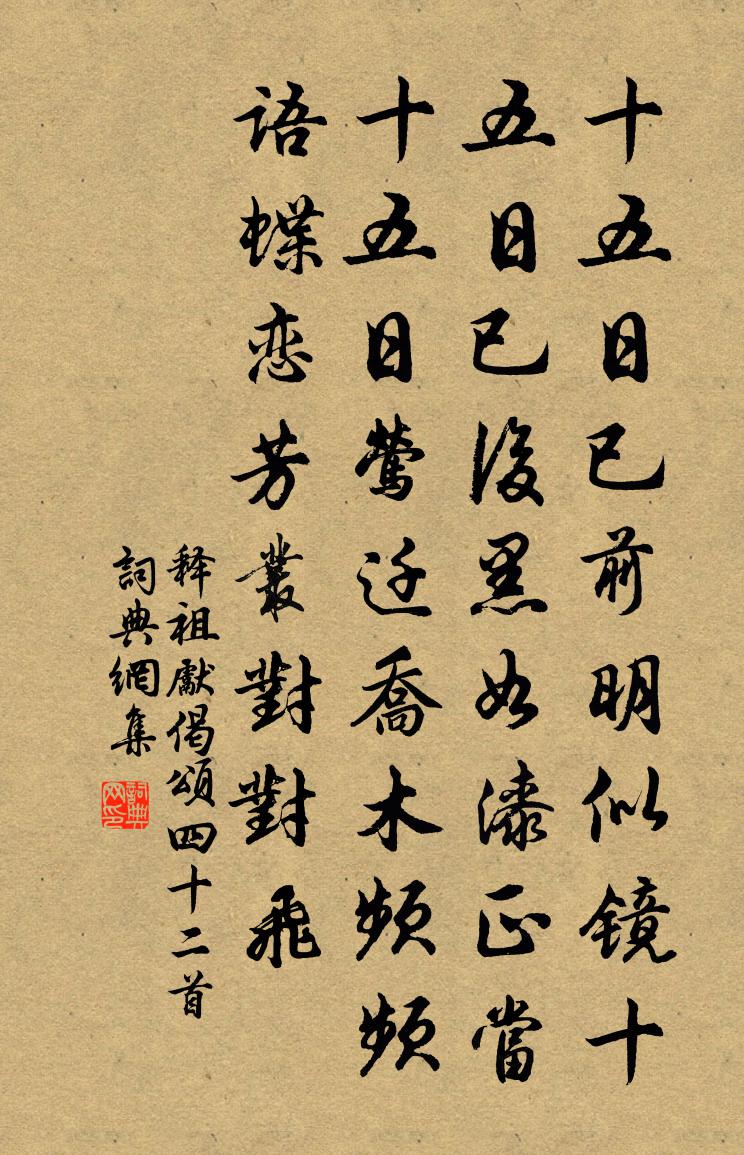 十五日已前明似镜十
五日已後黑如漆正當
十五日鶯迁喬木頻頻
語蝶恋芳叢對對飛
释祖獻偈頌四十二首
詞典網集
詞典网印